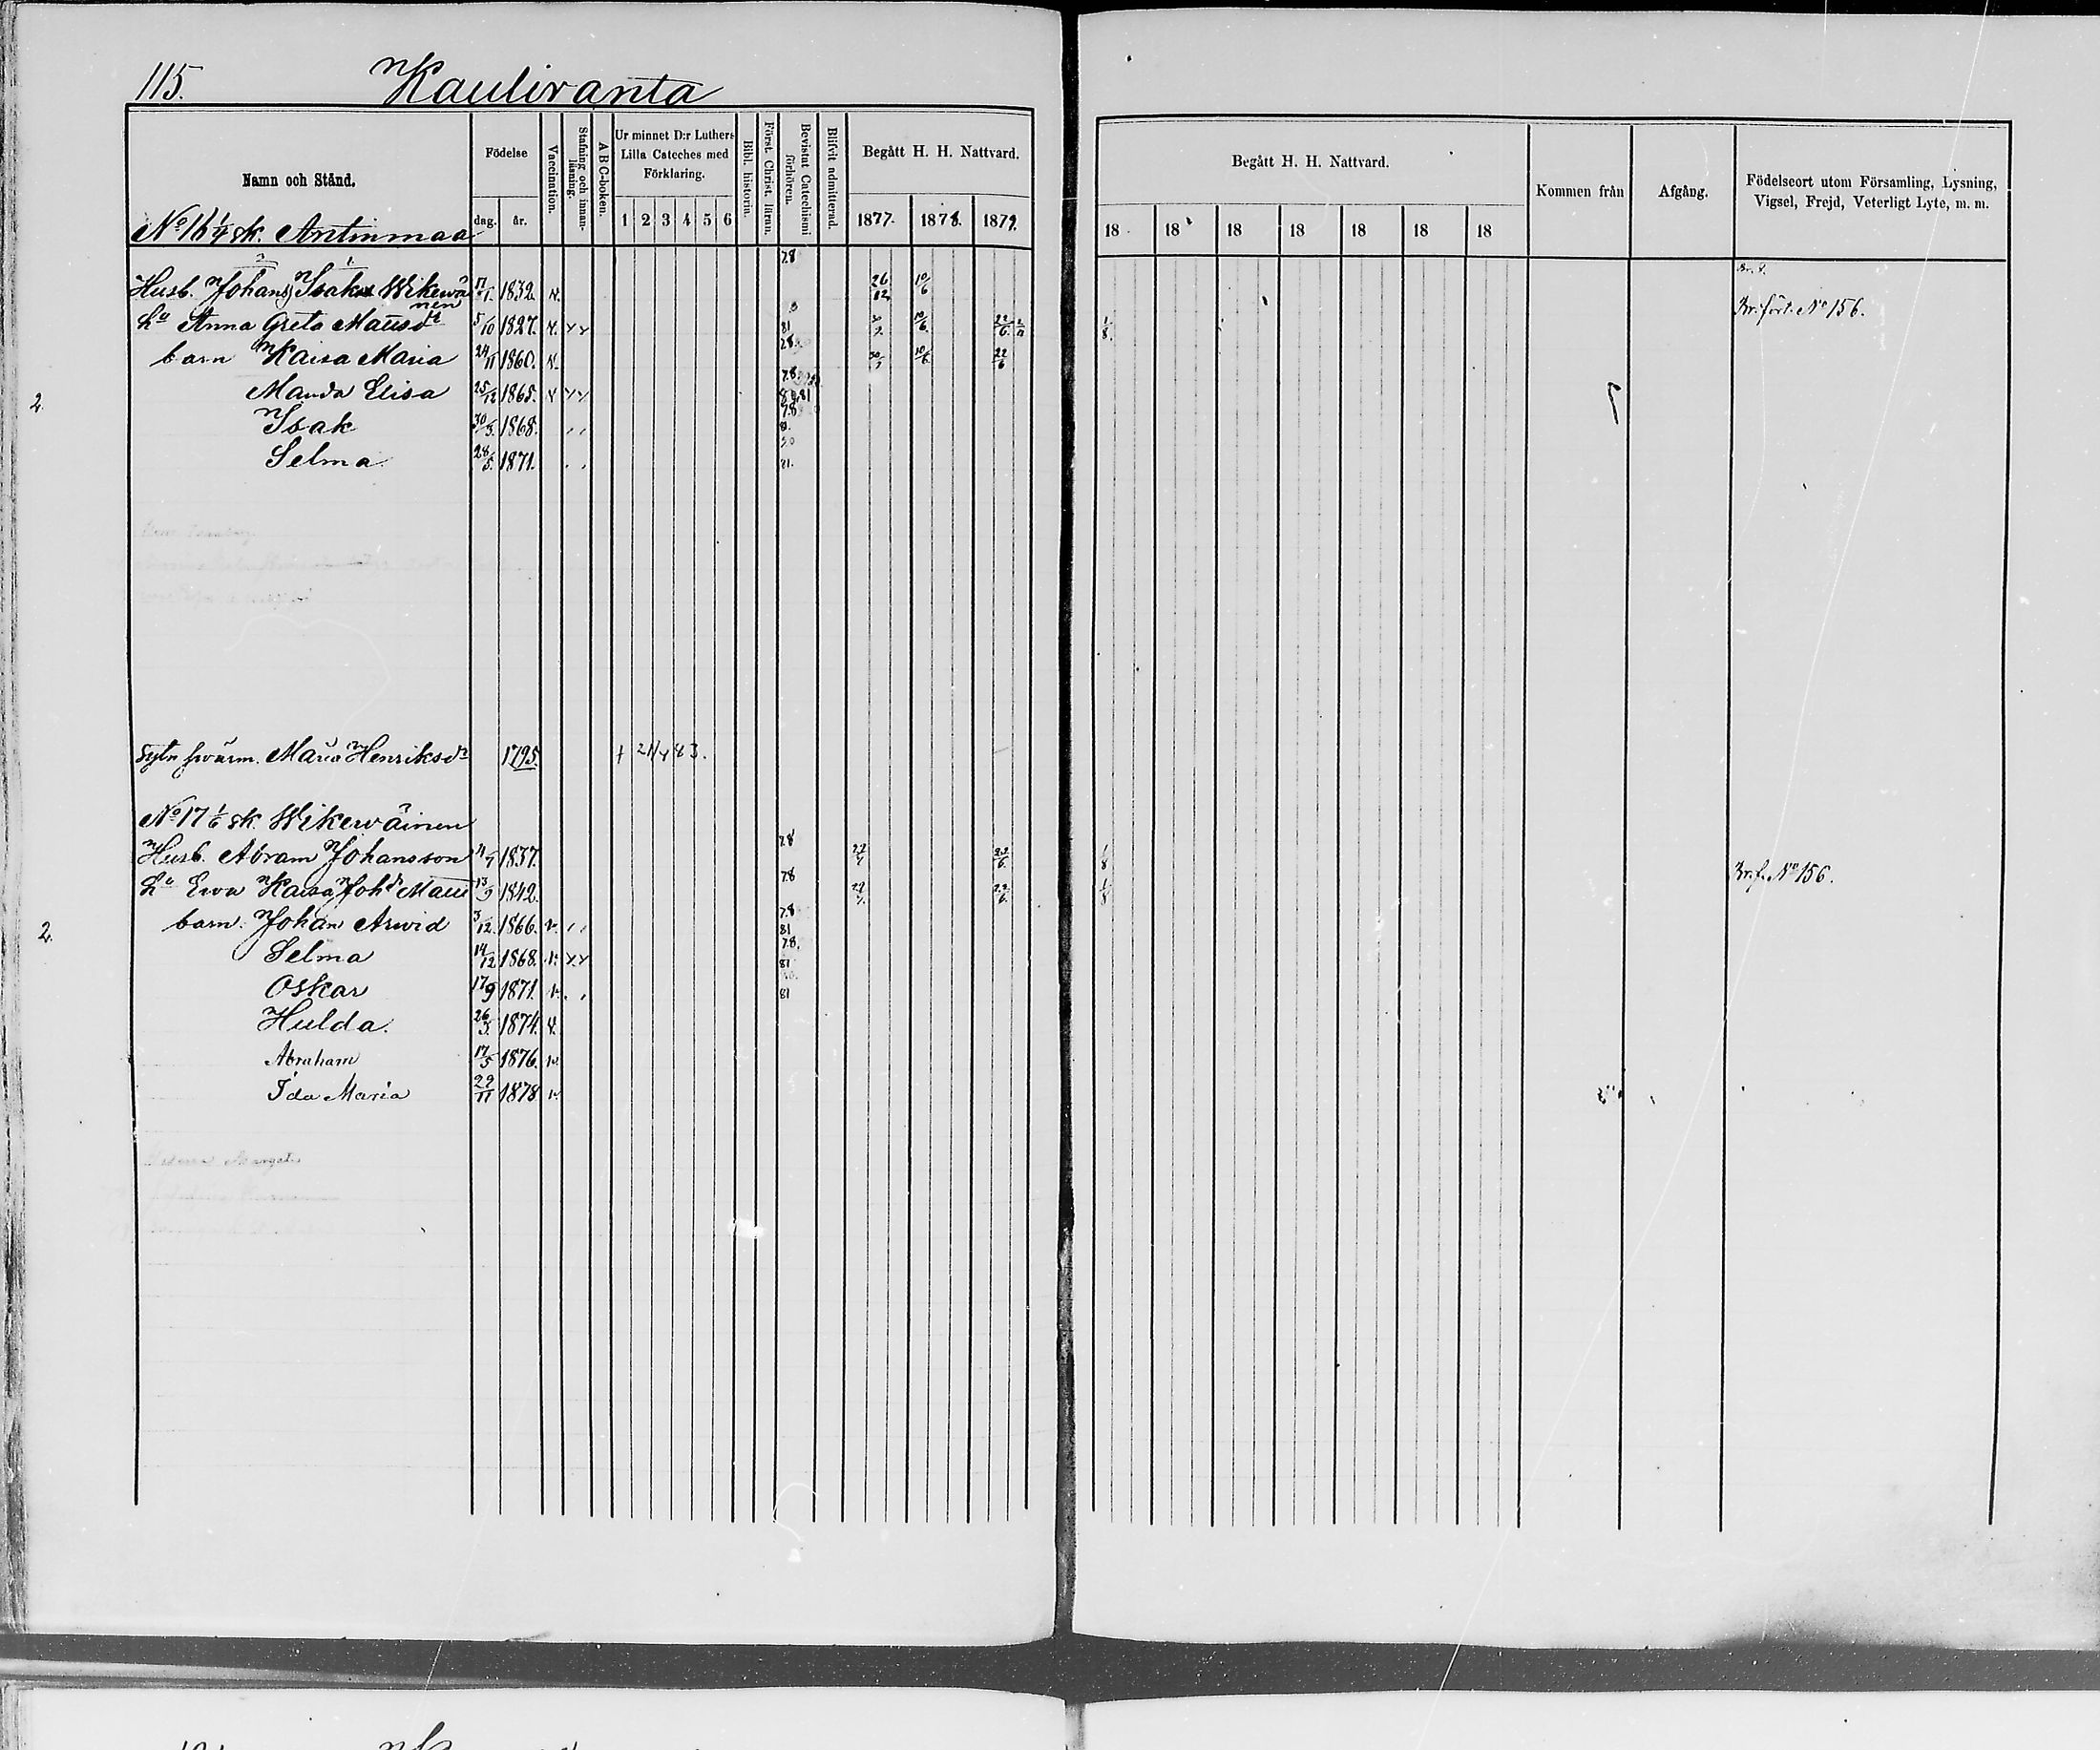 115. Kauliranta
Namn och Stånd. Födelse Vaccination. Stafning och innanläsning. A B C-boken. Ur minnet D:r Luthers Lilla Cateches med Förklaring. Bibl. historia. Först. Christ. läran. Bevistat Catechismi förhören. Blifvit admitterad. Begått H. H. Nattvard. Begått H. H. Nattvard. Kommen från Afgång. Födelseort utom Församling, Lysning, Vigsel, Frejd, Veterligt Lyte, m. m.
dag. år. 1 2 3 4 5 6 1877. 1878. 1879. 18 18 18 18 18 18 18
No 16 1/4 sk. Antinmaa
78
Husb. Johan Isaks Wikewäinen 17/1. 1832. v. 26/12 10/6
Hu Anna Greta Mausdr 5/10 1827. v. 81 10/6. 22/6. 1/8. Br. fört. No 156.
barn Kaisa Maria 24/11 1860. v. 10/6 22/6
2. Manda Elisa 25/12 1865. v 78 81
Isak 30/3. 1868. 78
Selma 28/5. 1871. 81.
Sytn. svärm. Maria Henriksdr 1795. † 21/4 83.
No 17 1/6 sk. Wikewäinen
Husb. Abram Johansson 1837. 78 22/6. 1/8
Hu Ewa Kaisa Johdr Maui 13/9 1842. 78 22/6. 1/8 Br. f. No 156.
2. barn: Johan Arwid 3/12. 1866. v. 78 81
Selma 14/12 1868. v. 78. 81
Oskar 17/9 1871. v. 81
Hulda. 26/3. 1874. v.
Abraham 17/5 1876. v.
Ida Maria 29/11 1878 v.